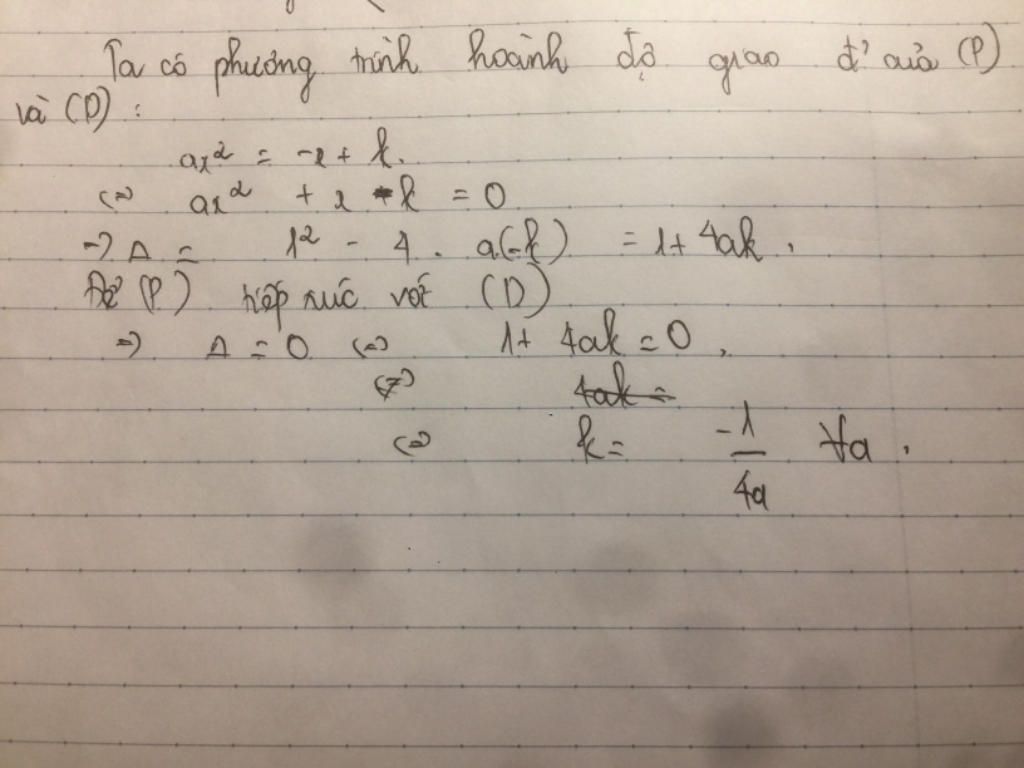 Ta có phương trình hoành độ giao đ' của (P)
và (D) :
ax² = -x + k.
(=) ax² + x - k = 0
=> Δ = 1² - 4 . a(-k) = 1 + 4ak .
Để (P) tiếp xúc với (D)
=> Δ = 0 (=) 1 + 4ak = 0 ,
(=) 4ak =
(=) k = -1/4a ∀a .